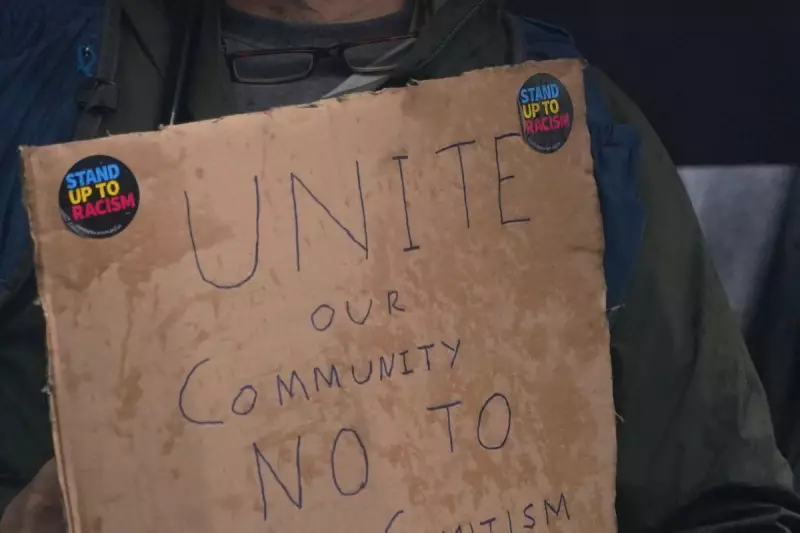 STAND
UP TO
RACISM
STAND
UP TO
RACISM
UNITE
OUR
COMMUNITY
NO TO